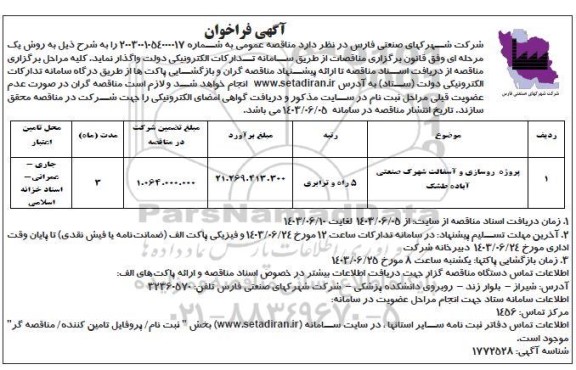 آگهی فراخوان
شرکت شهرکهای صنعتی فارس در نظر دارد مناقصه عمومی به شماره ۲۰۰۳۰۰۱۰۵۴۰۰۰۰۱۷ را به شرح ذیل به روش یک
مرحله ای وفق قانون برگزاری مناقصات از طریق سامانه تدارکات الکترونیکی دولت واگذار نماید. کلیه مراحل برگزاری
مناقصه از دریافت اسناد مناقصه تا ارائه پیشنهاد مناقصه گران و بازگشایی پاکت ها از طریق درگاه سامانه تدارکات
الکترونیکی دولت (ستاد) به آدرس www.setadiran.ir انجام خواهد شد و لازم است مناقصه گران در صورت عدم
عضویت قبلی مراحل ثبت نام در سایت مذکور و دریافت گواهی امضای الکترونیکی را جهت شرکت در مناقصه محقق
سازند. تاریخ انتشار مناقصه در سامانه ۱۴۰۳/۰۶/۰۵ می باشد.
شرکت شهرکهای صنعتی فارس
ردیف موضوع رتبه مبلغ برآورد مبلغ تضمین شرکت در مناقصه مدت (ماه) محل تامین اعتبار
۱ پروژه روسازی و آسفالت شهرک صنعتی آباده طشک ۵ راه و ترابری ۲۱.۲۶۹.۴۱۳.۳۰۰ ۱.۰۶۴.۰۰۰.۰۰۰ ۳ جاری – عمرانی – اسناد خزانه اسلامی
۱. زمان دریافت اسناد مناقصه از سایت: از ۱۴۰۳/۰۶/۰۵ لغایت ۱۴۰۳/۰۶/۱۰
۲. آخرین مهلت تسلیم پیشنهاد: در سامانه تدارکات ساعت ۱۲ مورخ ۱۴۰۳/۰۶/۲۴ و فیزیکی پاکت الف (ضمانت‌نامه یا فیش نقدی) تا پایان وقت
اداری مورخ ۱۴۰۳/۰۶/۲۴ دبیرخانه شرکت
۳. زمان بازگشایی پاکتها: یکشنبه ساعت ۸ مورخ ۱۴۰۳/۰۶/۲۵
اطلاعات تماس دستگاه مناقصه گزار جهت دریافت اطلاعات بیشتر در خصوص اسناد مناقصه و ارائه پاکت‌های الف:
آدرس: شیراز – بلوار زند – روبروی دانشکده پزشکی – شرکت شهرکهای صنعتی فارس تلفن: ۳۲۳۶۰۵۷۰
اطلاعات سامانه ستاد جهت انجام مراحل عضویت در سامانه:
مرکز تماس: ۱۴۵۶
اطلاعات تماس دفاتر ثبت نامه سایر استانها ، در سایت سامانه (www.setadiran.ir) بخش " ثبت نام/ پروفایل تامین کننده/ مناقصه گر"
موجود است.
شناسه آگهی: ۱۷۷۲۵۲۸
۰۲۱-۸۸۳۴۹۶۷۰-۵